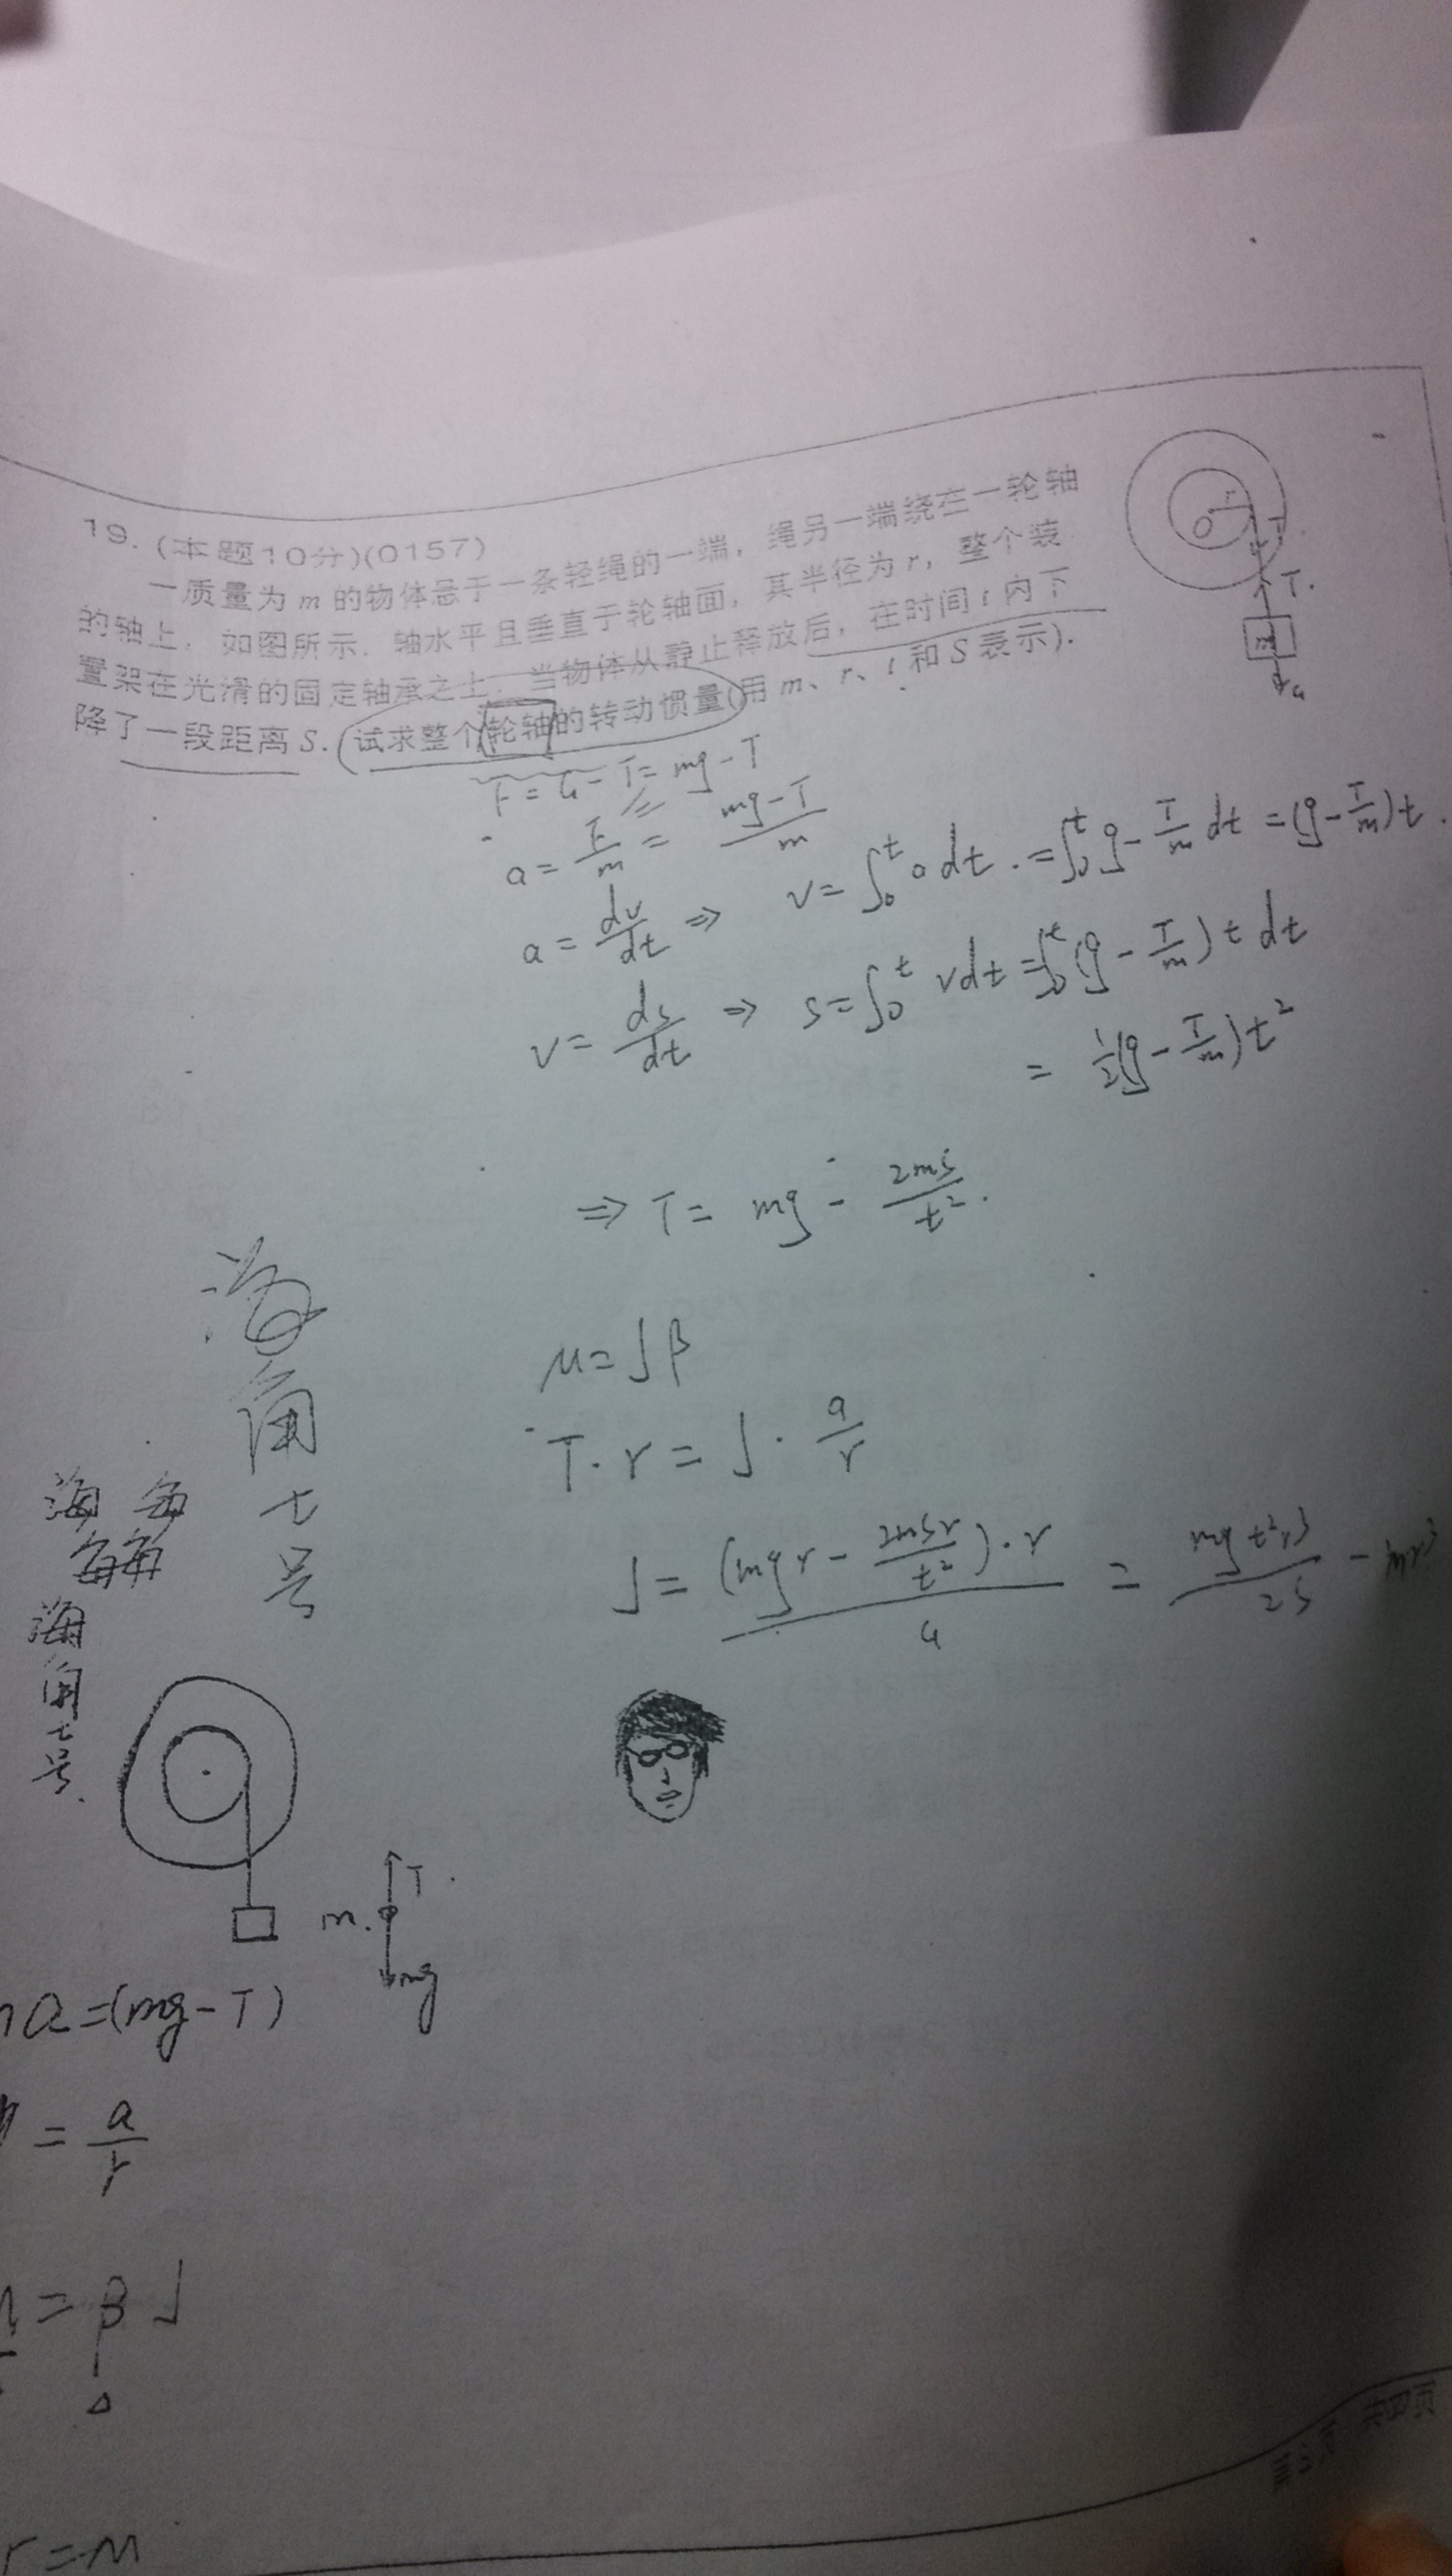 19. (本题10分)(0157)
一质量为 m 的物体悬于一条轻绳的一端，绳另一端绕在一轮轴
的轴上，如图所示．轴水平且垂直于轮轴面，其半径为 r，整个装
置架在光滑的固定轴承之上．当物体从静止释放后，在时间 t 内下
降了一段距离 S．试求整个轮轴的转动惯量(用 m、r、t 和 S 表示)．
r
O
T
T.
m
a
F = G - T = mg - T
a = F/m = (mg-T)/m
a = dv/dt ⇒ v = ∫₀ᵗ a dt. = ∫₀ᵗ g - T/m dt = (g - T/m)t.
v = ds/dt ⇒ s = ∫₀ᵗ vdt = ∫₀ᵗ (g - T/m) t dt
= ½(g - T/m)t²
⇒ T = mg - 2ms/t².
M = Jβ
T·r = J·a/r
J = (mgr - 2msr/t²)·r / a = mgt²r³/2s - mr³
海角七号
海 每
海角七号
T.
m.
mg
a = (mg - T)
= a/r
= β J
r = M
共四页